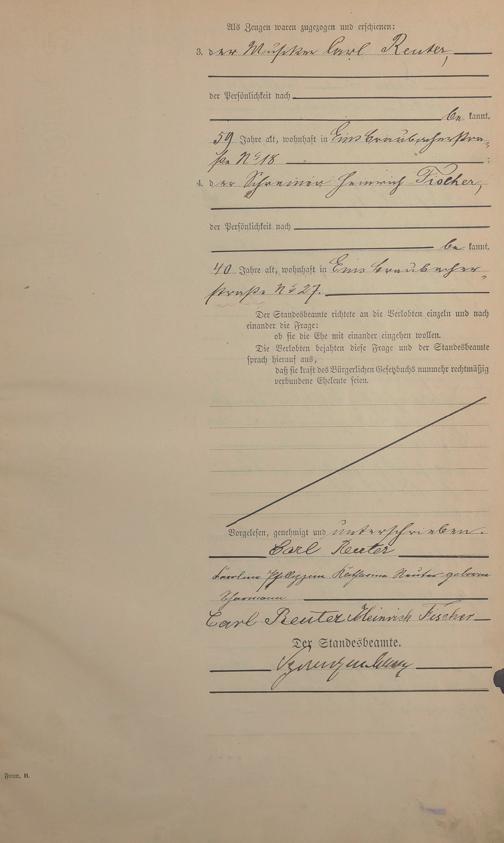 Als Zeugen waren zugezogen und erschienen:
3. der Musiker Carl Reuter,
der Persönlichkeit nach
be kannt,
59 Jahre alt, wohnhaft in Ems Braubacherstra-
ße No 18 ;
4. der Schreiner Heinrich Fischer,
der Persönlichkeit nach
be kannt,
40 Jahre alt, wohnhaft in Ems Braubacher-
straße No 27.
Der Standesbeamte richtete an die Verlobten einzeln und nach
einander die Frage:
ob sie die Ehe mit einander eingehen wollen.
Die Verlobten bejahten diese Frage und der Standesbeamte
sprach hierauf aus,
daß sie kraft des Bürgerlichen Gesetzbuchs nunmehr rechtmäßig
verbundene Eheleute seien.
Vorgelesen, genehmigt und unterschrieben.
Carl Reuter
Katharina Reuter geborene
Carl Reuter Heinrich Fischer
Der Standesbeamte.
Form. B.